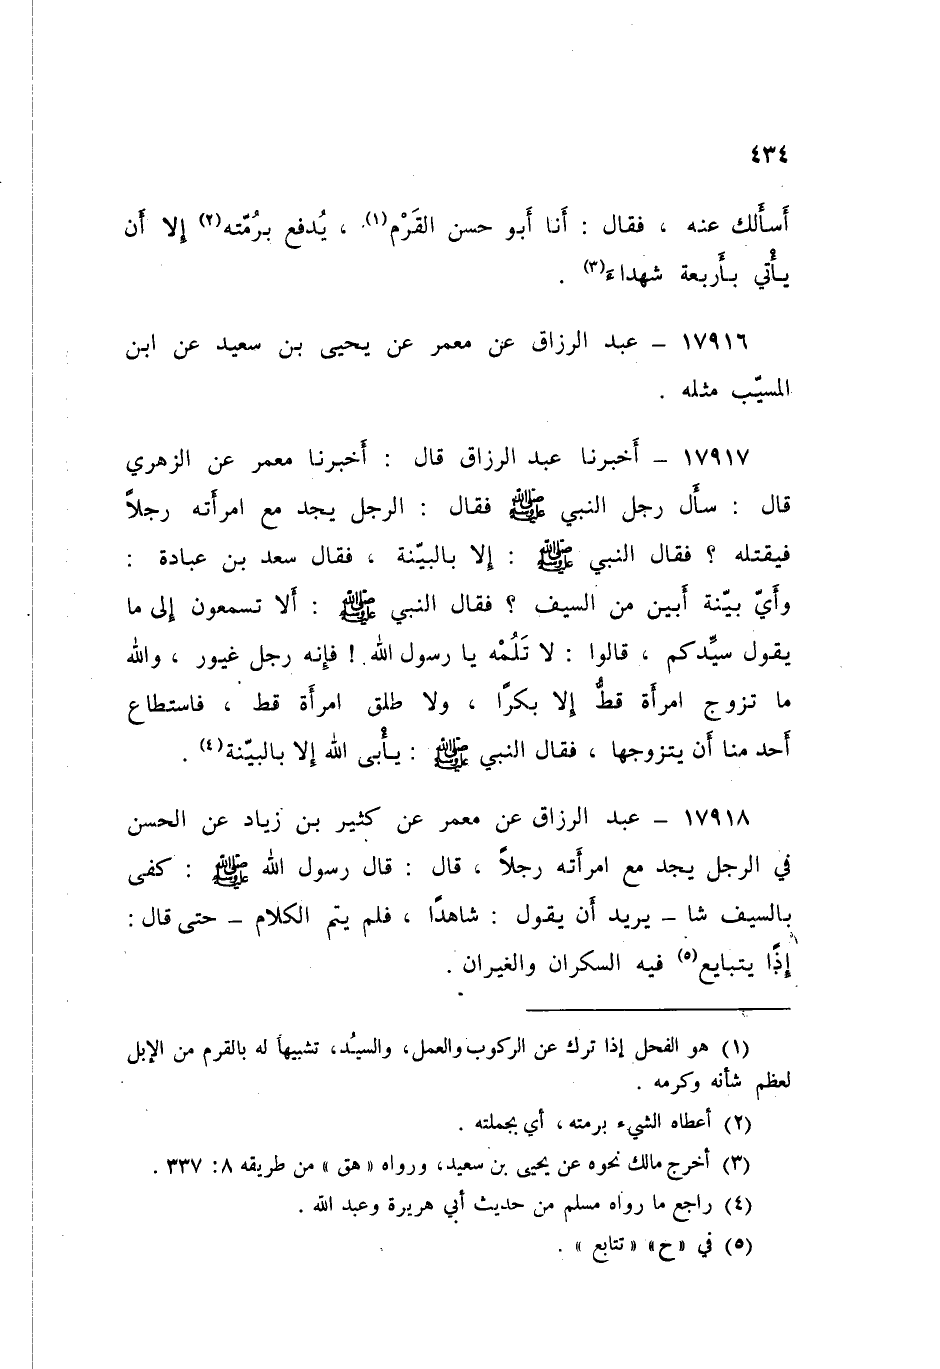 ٤٣٤
أَسأَلك عنه ، فقال : أَنا أَبو حسن القَرْم(١) ، يُدفع برُمّته(٢) إلا أَن
يأْتي بأَربعة شهداء(٣) .
١٧٩١٦ – عبد الرزاق عن معمر عن يحيى بن سعيد عن ابن
المسيّب مثله .
١٧٩١٧ – أَخبرنا عبد الرزاق قال : أَخبرنا معمر عن الزهري
قال : سأَل رجل النبي ﷺ فقال : الرجل يجد مع امرأَته رجلاً
فيقتله ؟ فقال النبي ﷺ : إلا بالبيّنة ، فقال سعد بن عبادة :
وأَيّ بيّنة أَبين من السيف ؟ فقال النبي ﷺ : أَلا تسمعون إلى ما
يقول سيِّدكم ، قالوا : لا تَلُمْه يا رسول الله ! فإنه رجل غيور ، والله
ما تزوج امرأَة قطُّ إلا بكرًا ، ولا طلق امرأَة قط ، فاستطاع
أَحد منا أَن يتزوجها ، فقال النبي ﷺ : يأْبى الله إلا بالبيّنة(٤) .
١٧٩١٨ – عبد الرزاق عن معمر عن كثير بن زياد عن الحسن
في الرجل يجد مع امرأَته رجلاً ، قال : قال رسول الله ﷺ : كفى
بالسيف شا – يريد أَن يقول : شاهدًا ، فلم يتم الكلام – حتى قال :
إذًا يتبايع(٥) فيه السكران والغيران .
(١) هو الفحل إذا ترك عن الركوب والعمل، والسيُد، تشبيهاً له بالقرم من الإبل
لعظم شأنه وكرمه .
(٢) أعطاه الشيء برمته ، أي بجملته .
(٣) أخرج مالك نحوه عن يحيى بن سعيد، ورواه « هق » من طريقه ٨: ٣٣٧ .
(٤) راجع ما رواه مسلم من حديث أبي هريرة وعبد الله .
(٥) في « ح » « تتابع » .